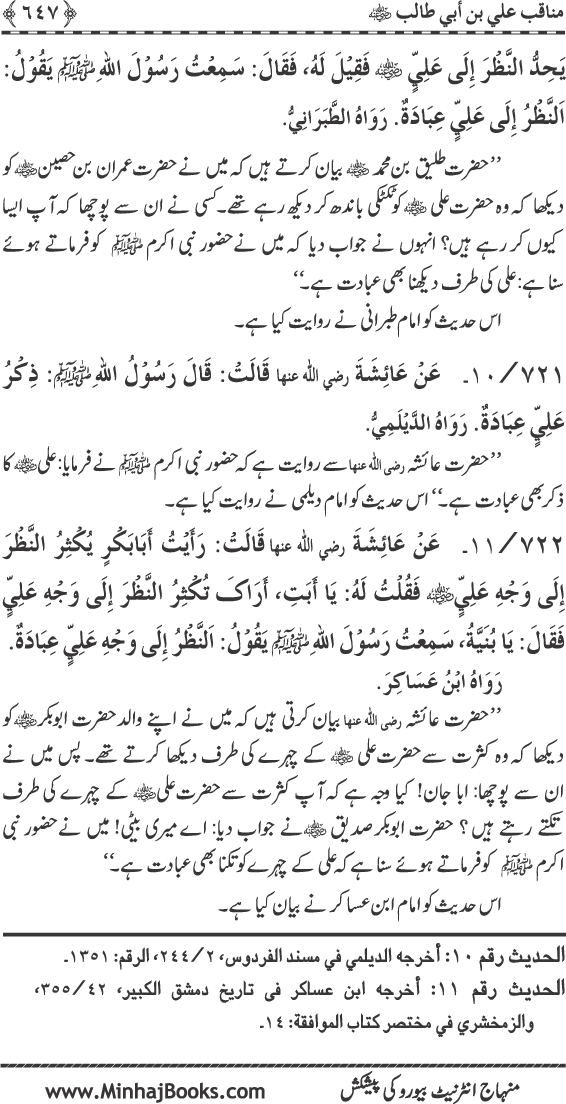 مناقب علي بن أبي طالب ﷺ ﴿٦٤٧﴾
يَحِدُّ النَّظَرَ إِلَى عَلِيٍّ ﷺ فَقِيْلَ لَهُ، فَقَالَ: سَمِعْتُ رَسُوْلَ اللهِ ﷺ يَقُوْلُ:
اَلنَّظْرُ إِلَى عَلِيٍّ عِبَادَةٌ. رَوَاهُ الطَّبَرَانِيُّ.
’’حضرت طلیق بن محمد ﷺ بیان کرتے ہیں کہ میں نے حضرت عمران بن حصین ﷺ کو
دیکھا کہ وہ حضرت علی ﷺ کو ٹکٹکی باندھ کر دیکھ رہے تھے۔ کسی نے ان سے پوچھا کہ آپ ایسا
کیوں کر رہے ہیں؟ انہوں نے جواب دیا کہ میں نے حضور نبی اکرم ﷺ کو فرماتے ہوئے
سنا ہے: علی کی طرف دیکھنا بھی عبادت ہے۔‘‘
اس حدیث کو امام طبرانی نے روایت کیا ہے۔
١٠/٧٢١۔ عَنْ عَائِشَةَ رضی اللہ عنہا قَالَتْ: قَالَ رَسُوْلُ اللهِ ﷺ: ذِكْرُ
عَلِيٍّ عِبَادَةٌ. رَوَاهُ الدَّيْلَمِيُّ.
’’حضرت عائشہ رضی اللہ عنہا سے روایت ہے کہ حضور نبی اکرم ﷺ نے فرمایا: علی ﷺ کا
ذکر بھی عبادت ہے۔‘‘ اس حدیث کو امام دیلمی نے روایت کیا ہے۔
١١/٧٢٢۔ عَنْ عَائِشَةَ رضی اللہ عنہا قَالَتْ: رَأَيْتُ أَبَابَكْرٍ يُكْثِرُ النَّظَرَ
إِلَى وَجْهِ عَلِيٍّ ﷺ فَقُلْتُ لَهُ: يَا أَبَتِ، أَرَاكَ تُكْثِرُ النَّظَرَ إِلَى وَجْهِ عَلِيٍّ
فَقَالَ: يَا بُنَيَّةُ، سَمِعْتُ رَسُوْلَ اللهِ ﷺ يَقُوْلُ: اَلنَّظْرُ إِلَى وَجْهِ عَلِيٍّ عِبَادَةٌ.
رَوَاهُ ابْنُ عَسَاكِرَ.
’’حضرت عائشہ رضی اللہ عنہا بیان کرتی ہیں کہ میں نے اپنے والد حضرت ابوبکر ﷺ کو
دیکھا کہ وہ کثرت سے حضرت علی ﷺ کے چہرے کی طرف دیکھا کرتے تھے۔ پس میں نے
ان سے پوچھا: ابا جان! کیا وجہ ہے کہ آپ کثرت سے حضرت علی ﷺ کے چہرے کی طرف
تکتے رہتے ہیں؟ حضرت ابوبکر صدیق ﷺ نے جواب دیا: اے میری بیٹی! میں نے حضور نبی
اکرم ﷺ کو فرماتے ہوئے سنا ہے کہ علی کے چہرے کو تکنا بھی عبادت ہے۔‘‘
اس حدیث کو امام ابن عساکر نے بیان کیا ہے۔
الحديث رقم ١٠: أخرجه الديلمي في مسند الفردوس، ٢/٢٤٤، الرقم: ١٣٥١۔
الحديث رقم ١١: أخرجه ابن عساكر فى تاريخ دمشق الكبير، ٤٢/٣٥٥،
والزمخشري في مختصر كتاب الموافقة: ١٤۔
منہاج انٹرنیٹ بیورو کی پیشکش www.MinhajBooks.com